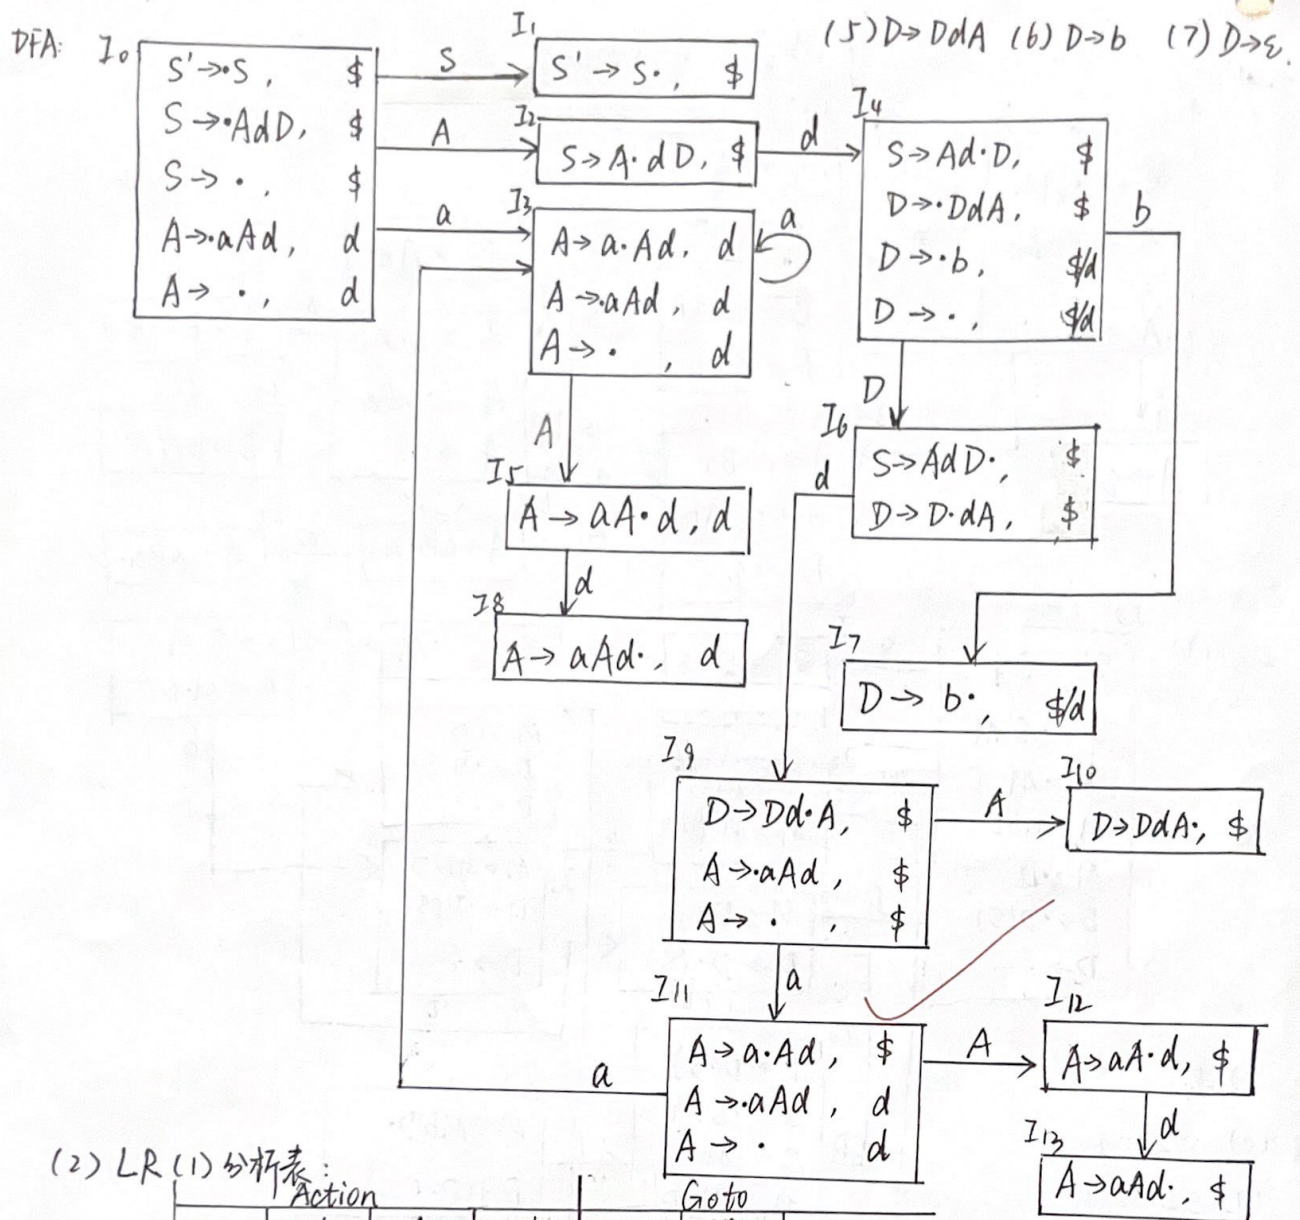 DFA:
(5) D→DdA (6) D→b (7) D→ε.
I0
S'→·S, $
S→·AdD, $
S→ ·, $
A→·aAd, d
A→ ·, d
S
A
a
I1
S'→S·, $
I2
S→A·dD, $
d
I3
A→a·Ad, d
A→·aAd, d
A→· , d
a
I4
S→Ad·D, $
D→·DdA, $
D→·b, $/d
D→·, $/d
b
D
A
I5
A→aA·d, d
d
I8
A→aAd·, d
I6
S→AdD·, $
D→D·dA, $
d
I7
D→b·, $/d
I9
D→Dd·A, $
A→·aAd, $
A→· , $
A
I10
D→DdA·, $
a
I11
A→a·Ad, $
A→·aAd, d
A→· d
a
A
I12
A→aA·d, $
d
I13
A→aAd·, $
(2) LR(1)分析表:
Action Goto